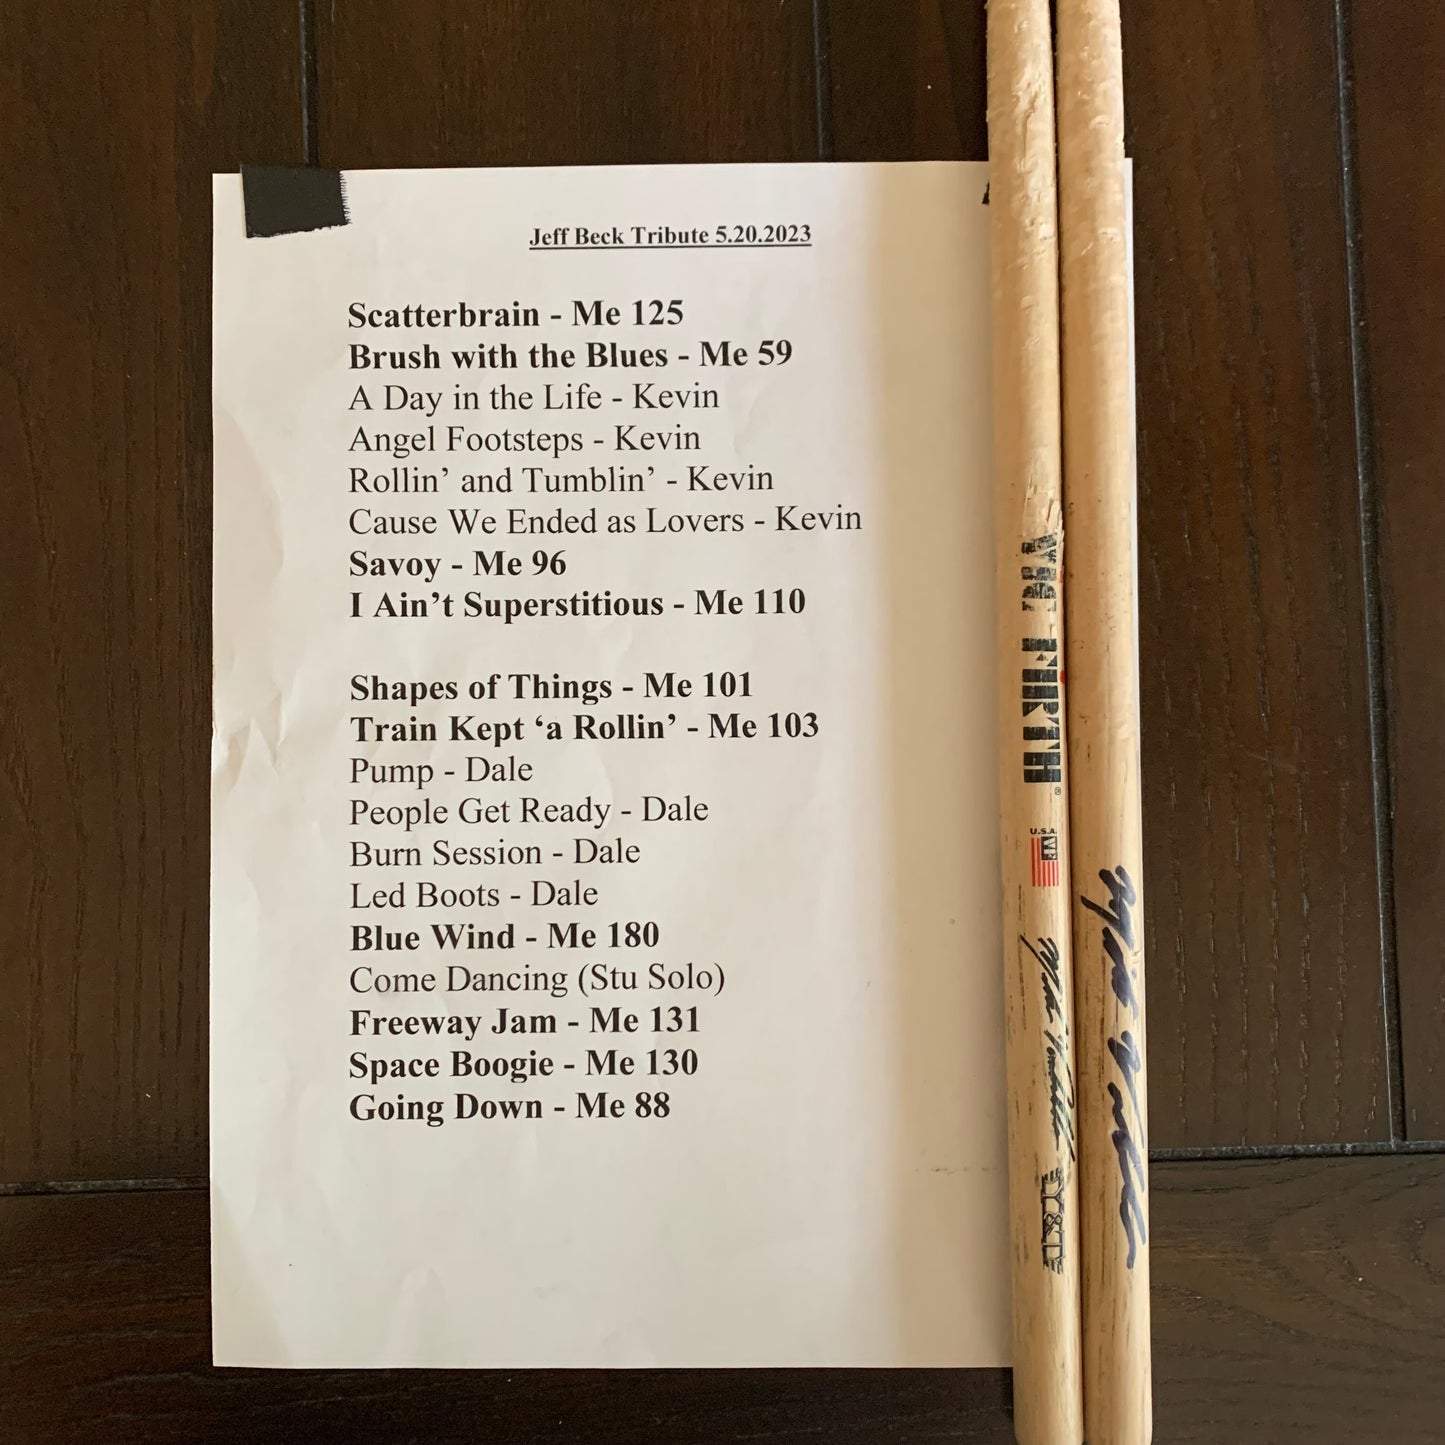 Jeff Beck Tribute 5.20.2023
Scatterbrain - Me 125
Brush with the Blues - Me 59
A Day in the Life - Kevin
Angel Footsteps - Kevin
Rollin’ and Tumblin’ - Kevin
Cause We Ended as Lovers - Kevin
Savoy - Me 96
I Ain’t Superstitious - Me 110
Shapes of Things - Me 101
Train Kept ‘a Rollin’ - Me 103
Pump - Dale
People Get Ready - Dale
Burn Session - Dale
Led Boots - Dale
Blue Wind - Me 180
Come Dancing (Stu Solo)
Freeway Jam - Me 131
Space Boogie - Me 130
Going Down - Me 88
VIC FIRTH®
U.S.A.
VF